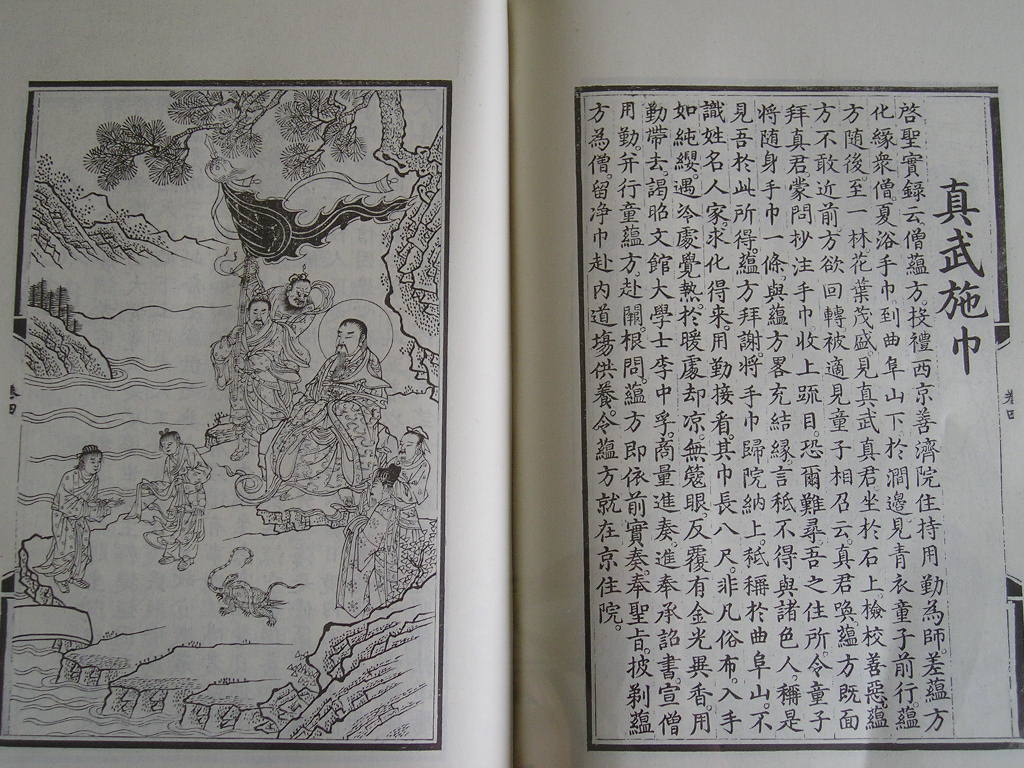 真武施巾
啓聖實録云僧蘊方投禮西京善濟院住持用勤為師差蘊方
化緣衆僧夏浴手巾到曲阜山下於澗邊見青衣童子前行蘊
方隨後至一林花葉茂盛見真武真君坐於石上檢校善惡蘊
方不敢近前方欲回轉被適見童子相召云真君喚蘊方既面
拜真君蒙問抄注手巾收上䟽目恐爾難尋吾之住所令童子
將随身手巾一條與蘊方畧充結緣言秪不得與諸色人稱是
見吾於此所得蘊方拜謝將手巾歸院納上秪稱於曲阜山不
識姓名人家求化得來用勤接看其巾長八尺非凡俗布入手
如純纓遇冷處覺熱於暖處却凉無篾眼反覆有金光異香用
勤帶去謁昭文館大學士李中孚商量進奏進奉承詔書宣僧
用勤并行童蘊方赴闕根問蘊方即依前實奏奉聖旨披剃蘊
方為僧留净巾赴内道塲供養令蘊方就在京住院
卷四
卷四